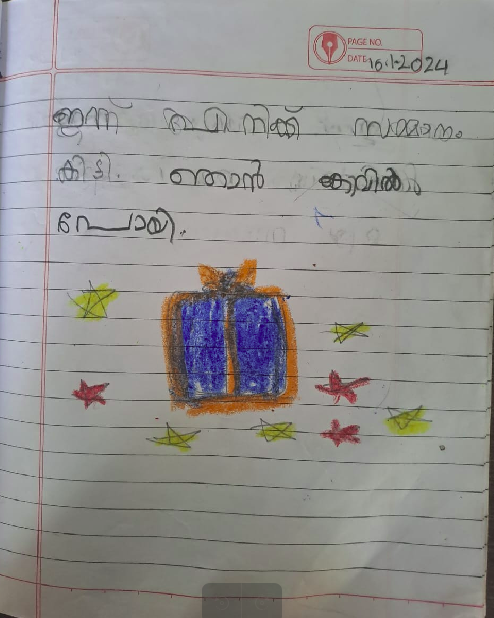 PAGE NO.
DATE 10.1.2024
ഇന്ന് എനിക്ക് സമ്മാനം
കിട്ടി. ഞാൻ കാവിൽ
പോയി.